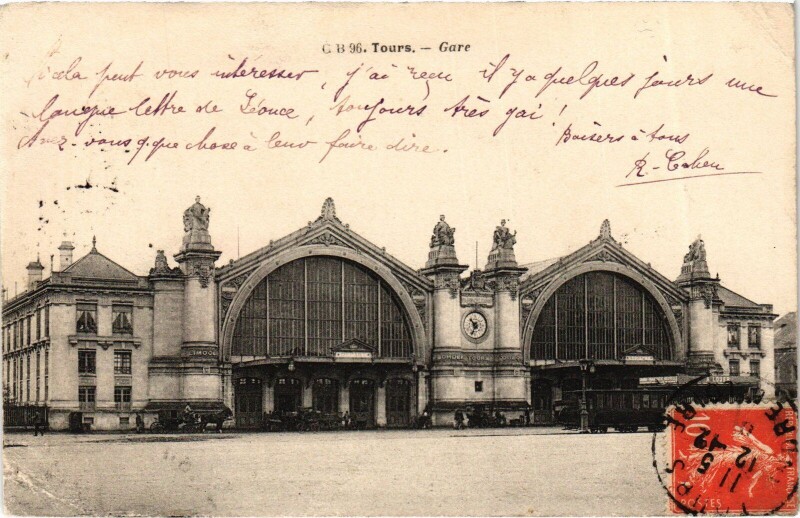 C B 96. Tours. — Gare
Si cela peut vous intéresser, j'ai reçu il y a quelques jours une
longue lettre de Léonce, toujours très gai!
Avez-vous q.que chose à leur faire dire.
Baisers à tous
R. Cohen
LIMOGES
TOURS
10
POSTES
5
11
12